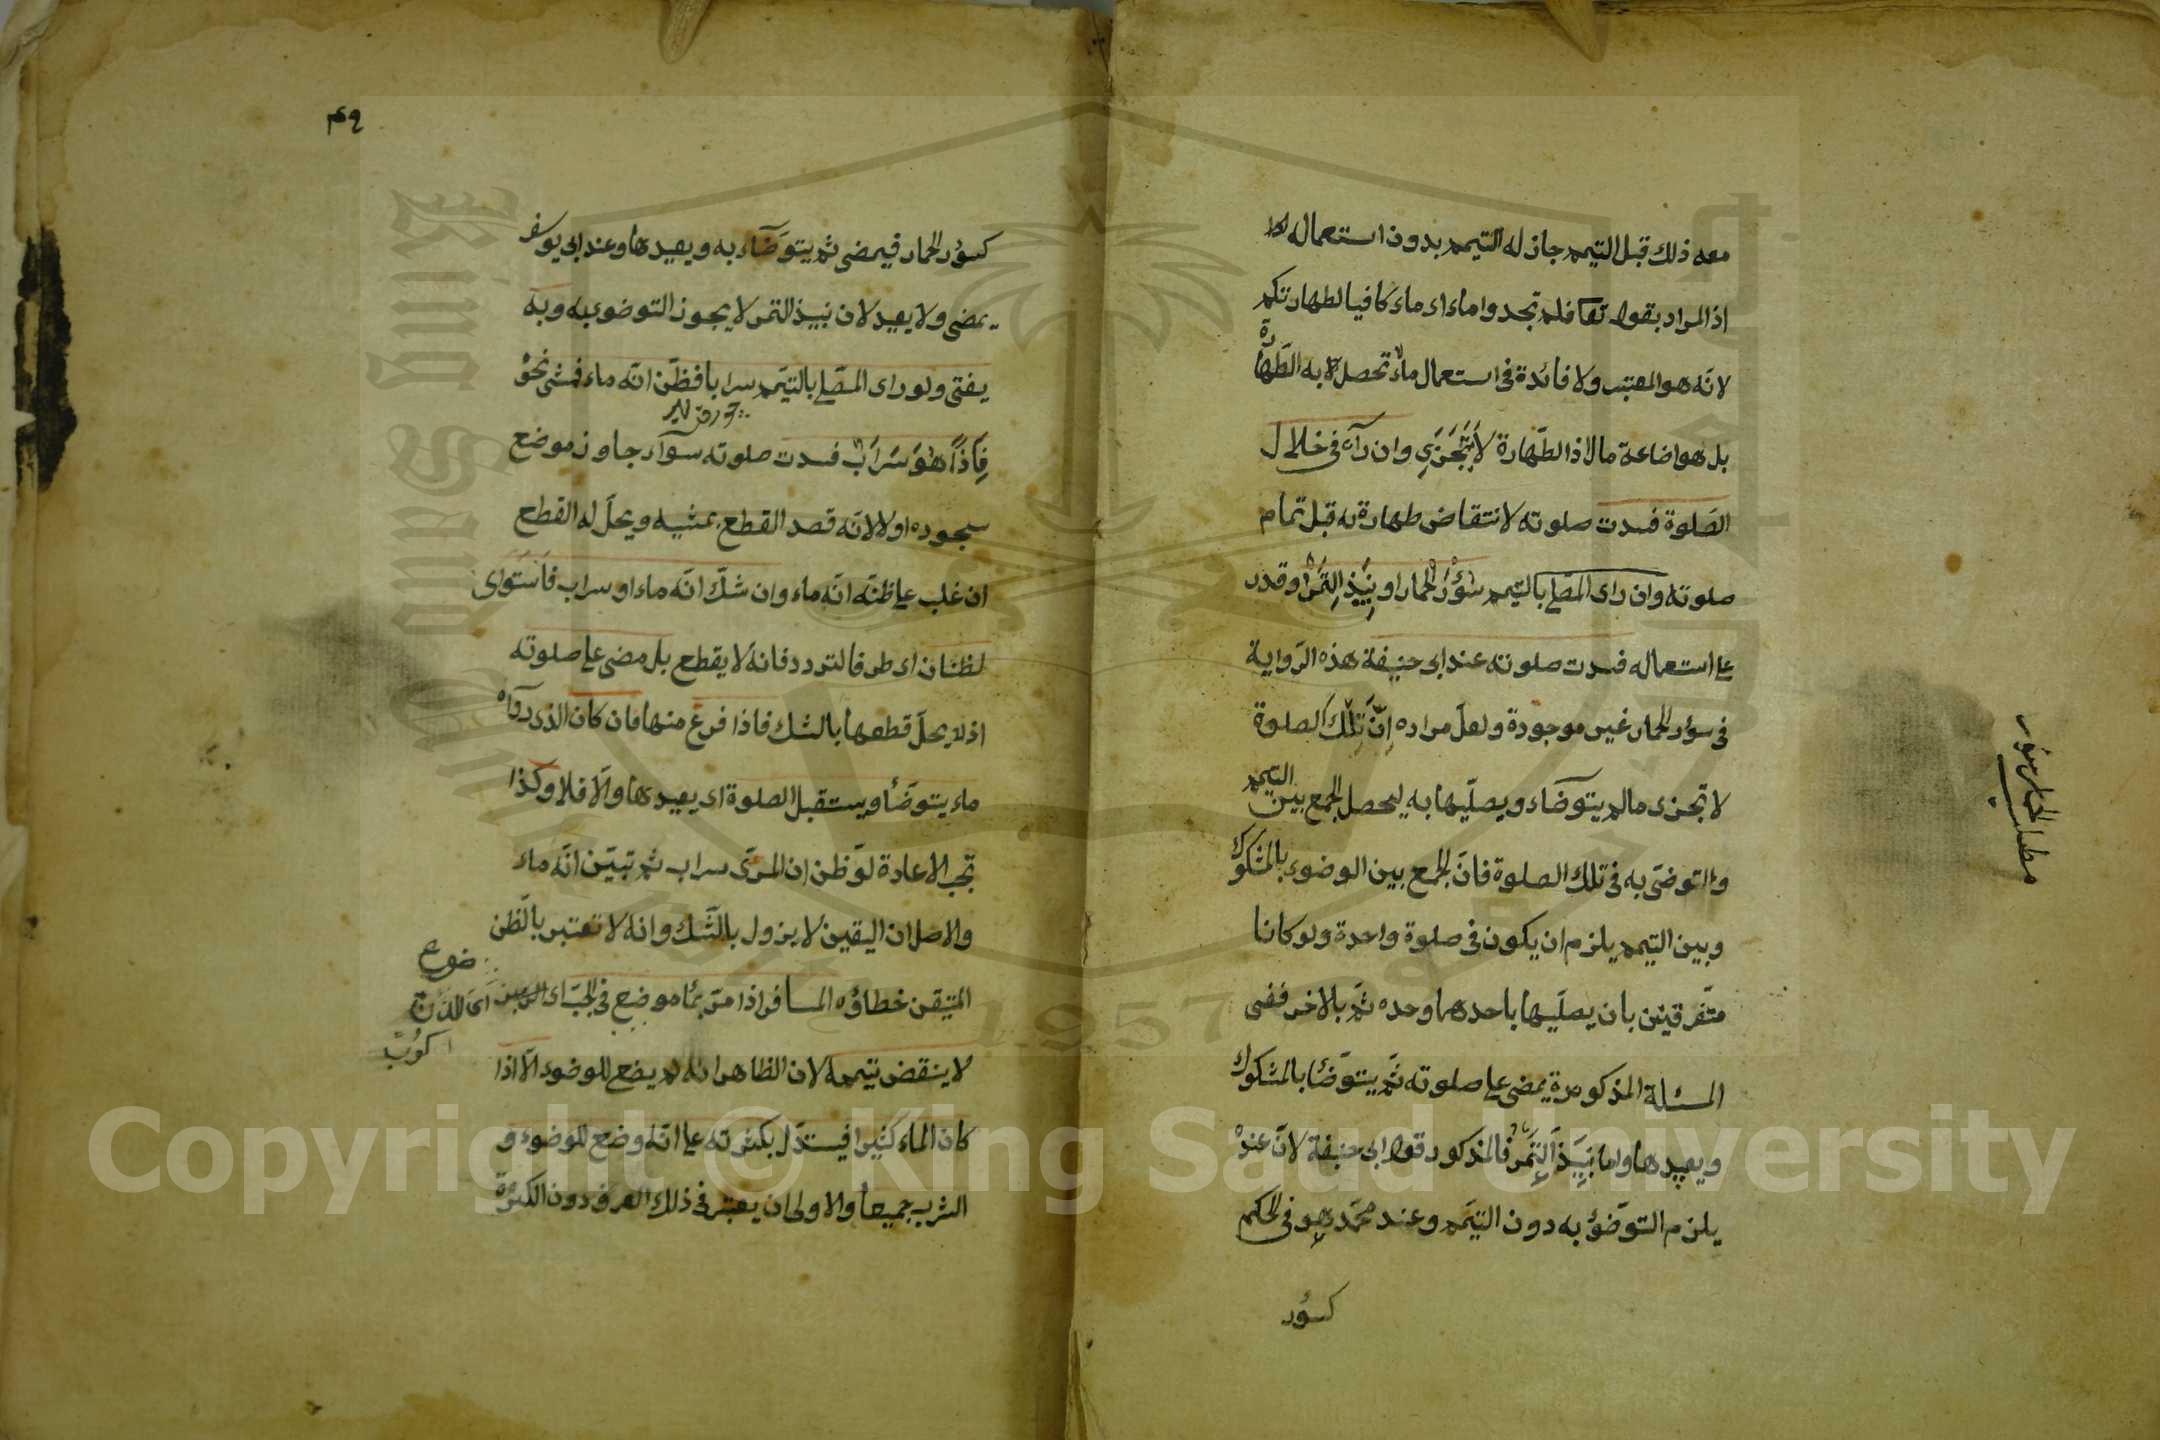 معه ذلك قبل التيمم جاز له التيمم بدون استعماله
اذ المراد بقوله تعا فلم تجدوا ماء اى ماء كافيا لطهارتكم
لانه هو المعتبر ولا فائدة فى استعمال ماء لا تحصل به الطهارة
بل هو اضاعة مال اذ الطهارة لا تتجزى وان رآه فى خلال
الصلوة فسدت صلوته لانتقاض طهارته قبل تمام
صلوته وان راى المصلى بالتيمم سؤر الحمار او نبيذ التمر وقدر
على استعماله فسدت صلوته عند ابى حنيفة هذه الرواية
فى سؤر الحمار غير موجودة ولعل مراده ان تلك الصلوة
لا تجزى ما لم يتوضاء ويصليها به ليحصل الجمع بين التيمم
والتوضى به فى تلك الصلوة فان الجمع بين الوضوء بالمشكوك
وبين التيمم يلزم ان يكون فى صلوة واحدة ولو كانا
متفرقين بان يصليها باحدهما وحده ثم بالاخر ففى
المسئلة المذكورة يمضى على صلوته ثم يتوضأ بالمشكوك
ويعيدها واما نبيذ التمر فالمذكور قول ابى حنيفة لان عنده
يلزم التوضؤ به دون التيمم وعند محمد هو فى الحكم
كسؤر
مطلب
٤٩
كسؤر الحمار فيمضى ثم يتوضاء به ويعيدها وعند ابى يوسف
يمضى ولا يعيد لان نبيذ التمر لا يجوز التوضوء به وبه
يفتى ولو راى المصلى بالتيمم سرابا فظن انه ماء فمشى نحوه
فاذا هو سراب فسدت صلوته سوآء جاوز موضع
سجوده او لا لانه قصد القطع بمشيه ويحل له القطع
ان غلب على ظنه انه ماء وان شك انه ماء او سراب فاستوى
لظنان اى طرفا التردد فانه لا يقطع بل مضى على صلوته
اذ لا يحل قطعها بالشك فاذا فرغ منها فان كان الذى رآه
ماء يتوضأ ويستقبل الصلوة اى يعيدها والا فلا وكذا
تجب الاعادة لو ظن ان المرئى سراب ثم تبين انه ماء
والاصل ان اليقين لا يزول بالشك وانه لا تعتبر بالظن
المتيقن خطاؤه المسافر اذا مر بماء موضع فى الجب اى
لا ينقض تيممه لان الظاهر انه لم يضع للوضوء الا اذا
كان الماء كثيرا فيستدل بكثرته على انه وضع للوضوء و
الشرب جميعا والاولى ان يعتبر فى ذلك العرف دون الكثرة
King Saud University
1957
Copyright © King Saud University